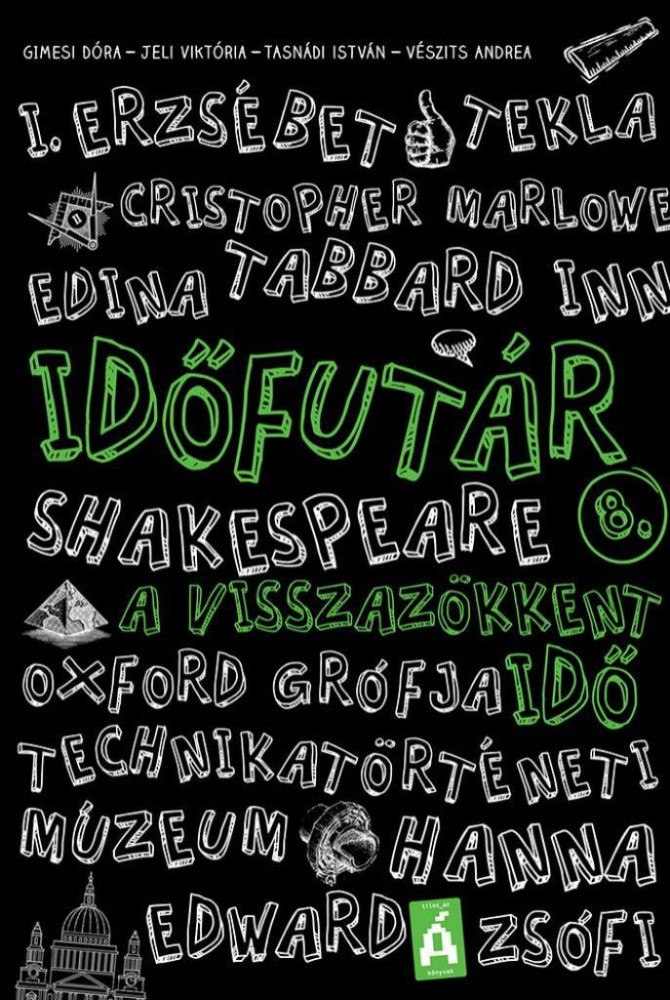 GIMESI DÓRA – JELI VIKTÓRIA – TASNÁDI ISTVÁN – VÉSZITS ANDREA
I. ERZSÉBET TEKLA
CRISTOPHER MARLOWE
EDINA TABBARD INN
IDŐFUTÁR
SHAKESPEARE 8.
A VISSZAZÖKKENT
OXFORD GRÓFJA IDŐ
TECHNIKATÖRTÉNETI
MÚZEUM HANNA
EDWARD tilos_az Á könyvek ZSÓFI